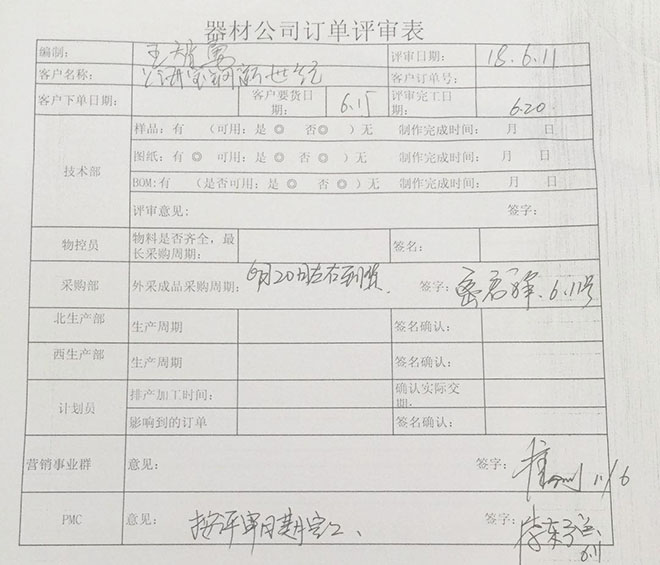 器材公司订单评审表
编制: 评审日期: 18.6.11
客户名称: 客户订单号:
客户下单日期: 客户要货日期: 6.15 评审完工日期: 6.20
技术部
样品:有 (可用:是◎ 否◎)无 制作完成时间: 月 日
图纸:有◎ 可用:是◎ 否◎)无 制作完成时间: 月 日
BOM:有 (是否可用:是◎ 否◎)无 制作完成时间: 月 日
评审意见: 签字:
物控员 物料是否齐全,最长采购周期: 签名:
采购部 外采成品采购周期: 6月20日左右到货. 签字: 6.11号
北生产部 生产周期 签名确认:
西生产部 生产周期 签名确认:
计划员 排产加工时间: 确认实际交期:
影响到的订单 签名确认:
营销事业群 意见: 签字: 11/6
PMC 意见: 按评审日期完工、 签字: 6.11